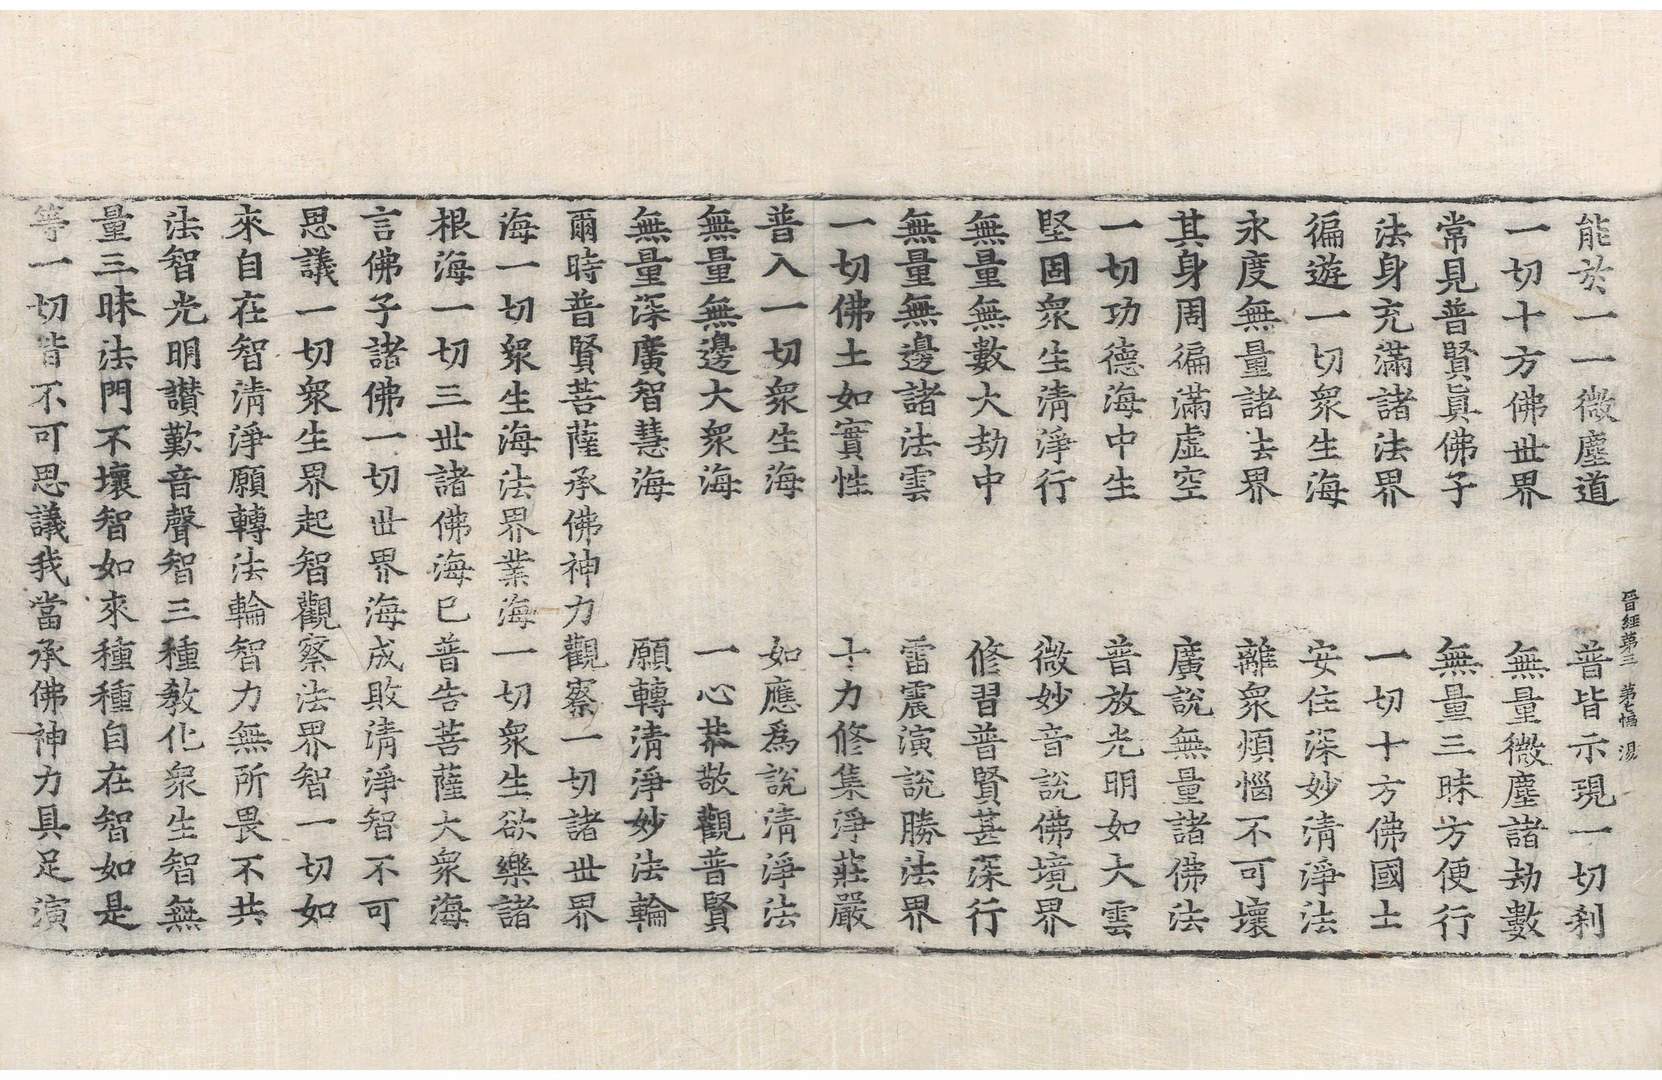 能於一一微塵道　普皆示現一切剎
一切十方佛世界　無量微塵諸劫數
常見普賢眞佛子　無量三昧方便行
法身充滿諸法界　一切十方佛國土
徧遊一切衆生海　安住深妙清淨法
永度無量諸法界　離衆煩惱不可壞
其身周徧滿虛空　廣說無量諸佛法
一切功德海中生　普放光明如大雲
堅固衆生清淨行　微妙音說佛境界
無量無數大劫中　修習普賢甚深行
無量無邊諸法雲　雷震演說勝法界
一切佛土如實性　十力修集淨莊嚴
普入一切衆生海　如應爲說清淨法
無量無邊大衆海　一心恭敬觀普賢
無量深廣智慧海　願轉清淨妙法輪
爾時普賢菩薩承佛神力觀察一切諸世界
海一切衆生海法界業海一切衆生欲樂諸
根海一切三世諸佛海已普告菩薩大衆海
言佛子諸佛一切世界海成敗清淨智不可
思議一切衆生界起智觀察法界智一切如
來自在智清淨願轉法輪智力無所畏不共
法智光明讃歎音聲智三種教化衆生智無
量三昧法門不壞智如來種種自在智如是
等一切皆不可思議我當承佛神力具足演
晉經第三　第七幅　湯